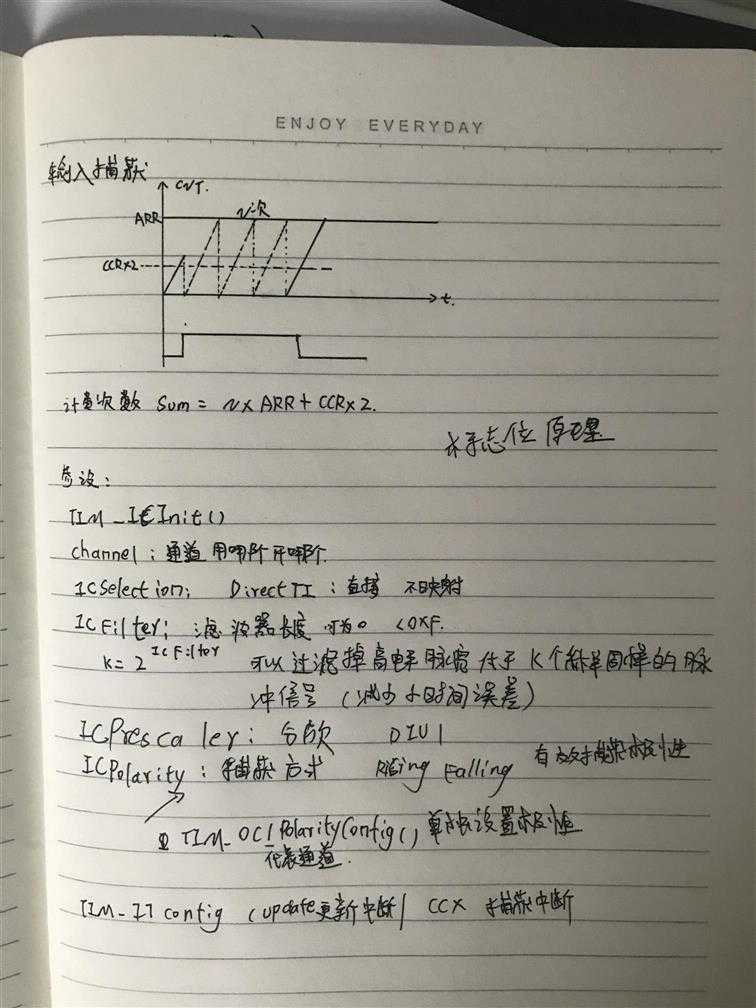 ENJOY EVERYDAY
输入捕获
CNT.
ARR
N次
CCRx2
t.
计数次数 Sum = N x ARR + CCRx2.
标志位原理
参数:
TIM_ICInit()
channel: 通道 用哪个开哪个.
ICSelection; DirectTI: 直接 不映射
ICFilter; 滤波器长度 可为0 <0XF.
K=2^ICFilter 可以过滤掉高电平脉宽低于K个采样周样的脉
冲信号 (减少小时间误差)
ICPrescaler: 分频 DIV1
ICPolarity: 捕获方式 Rising Falling 有效捕获极性
TIM_OC1PolarityConfig() 单独设置极性
代表通道.
TIM_ITconfig (update更新中断/ CCX 捕获中断